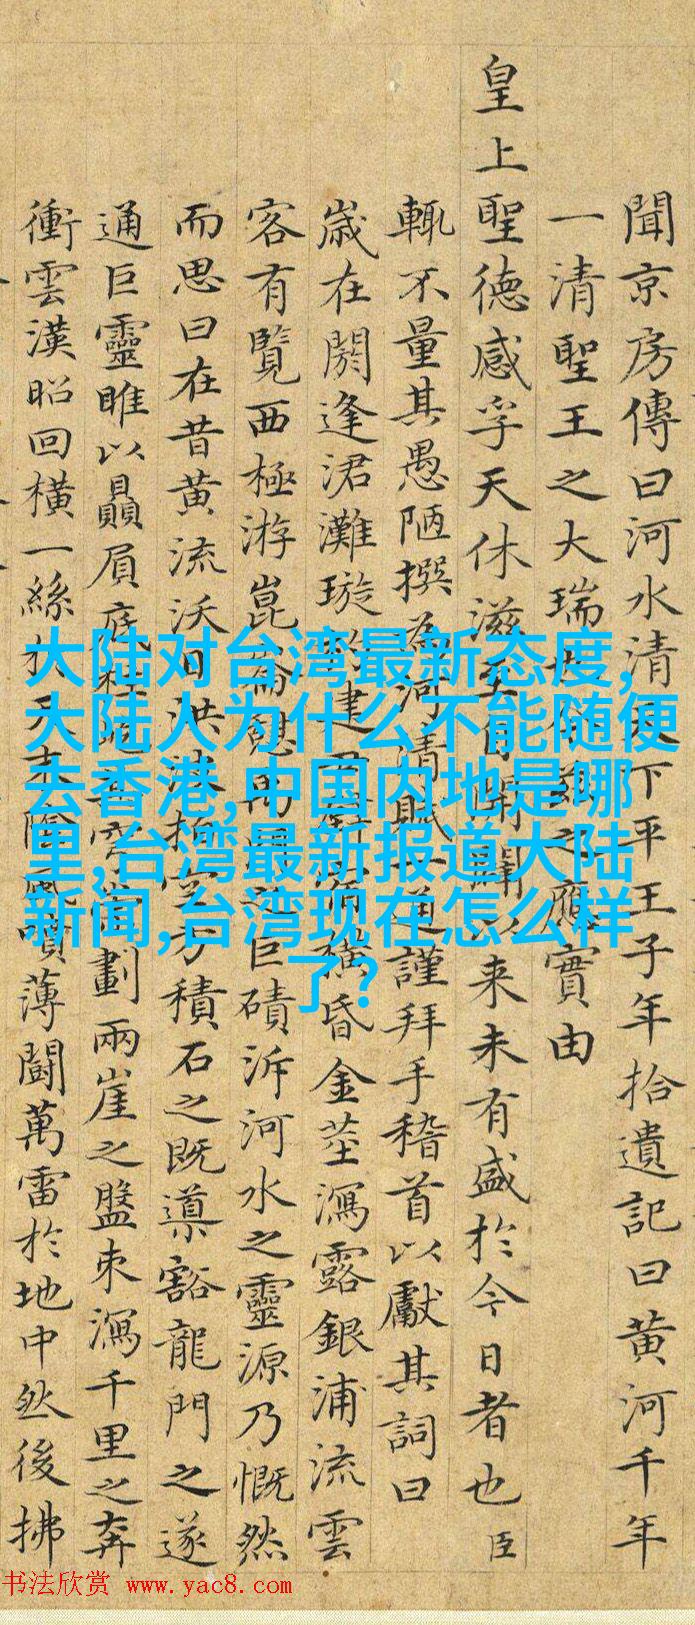 聞京房傳曰河水清天下平王子年拾遺記曰黄河千年
一清聖王之大瑞之應實由
皇上聖德感孚天休滋至自開闢以来未有盛於今日者也臣
輒不量其愚陋撰為河清賦一通謹拜手稽首以獻其詞曰
歳在閼逢涒灘璇建橫昏金莖瀉露銀浦流雲
客有覽西極游崑崙巨磧泝河水之靈源乃慨然
而思曰在昔黄流沃日洪方積石之既導豁龍門之遂
通巨靈睢以贔屓底劃兩崖之盤束瀉千里之奔
衝雲漢昭回橫一絲於天末噴薄鬭萬雷於地中然後拂
大陆对台湾最新态度,
大陆人为什么不能随便
去香港,中国内地是哪
里,台湾最新报道大陆
新闻,台湾现在怎么样
了?
书法欣赏 www.yac8.com